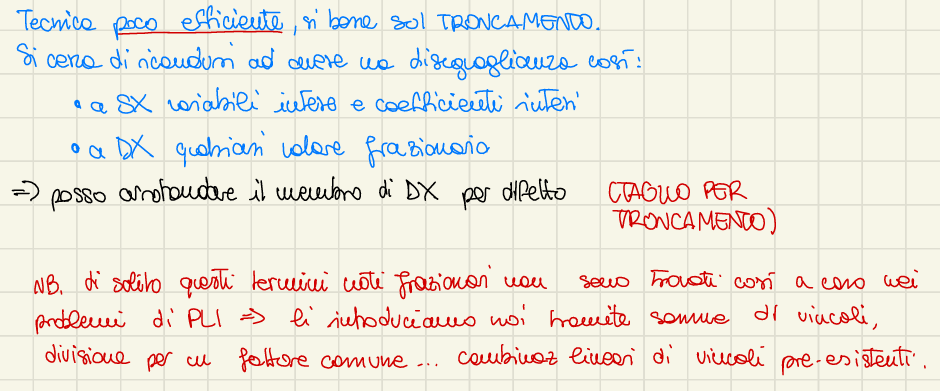 Tecnica poco efficiente, si basa sul TRONCAMENTO.
Si cerca di ricondursi ad avere una disuguaglianza così:
• a SX variabili intere e coefficienti interi
• a DX qualsiasi valore frazionario
=> posso arrotondare il membro di DX per difetto (TAGLIO PER
TRONCAMENTO)
NB. di solito questi termini noti frazionari non sono trovati così a caso nei
problemi di PLI => li introduciamo noi tramite somme di vincoli,
divisione per un fattore comune... combinaz lineari di vincoli pre-esistenti.